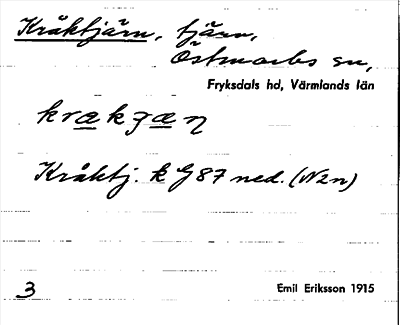 Kråktjärn, tjärn,
Östmarks sn,
Fryksdals hd, Värmlands län
krækʒæn
Kråktj. k G 87 ned. (N2n)
3
Emil Eriksson 1915